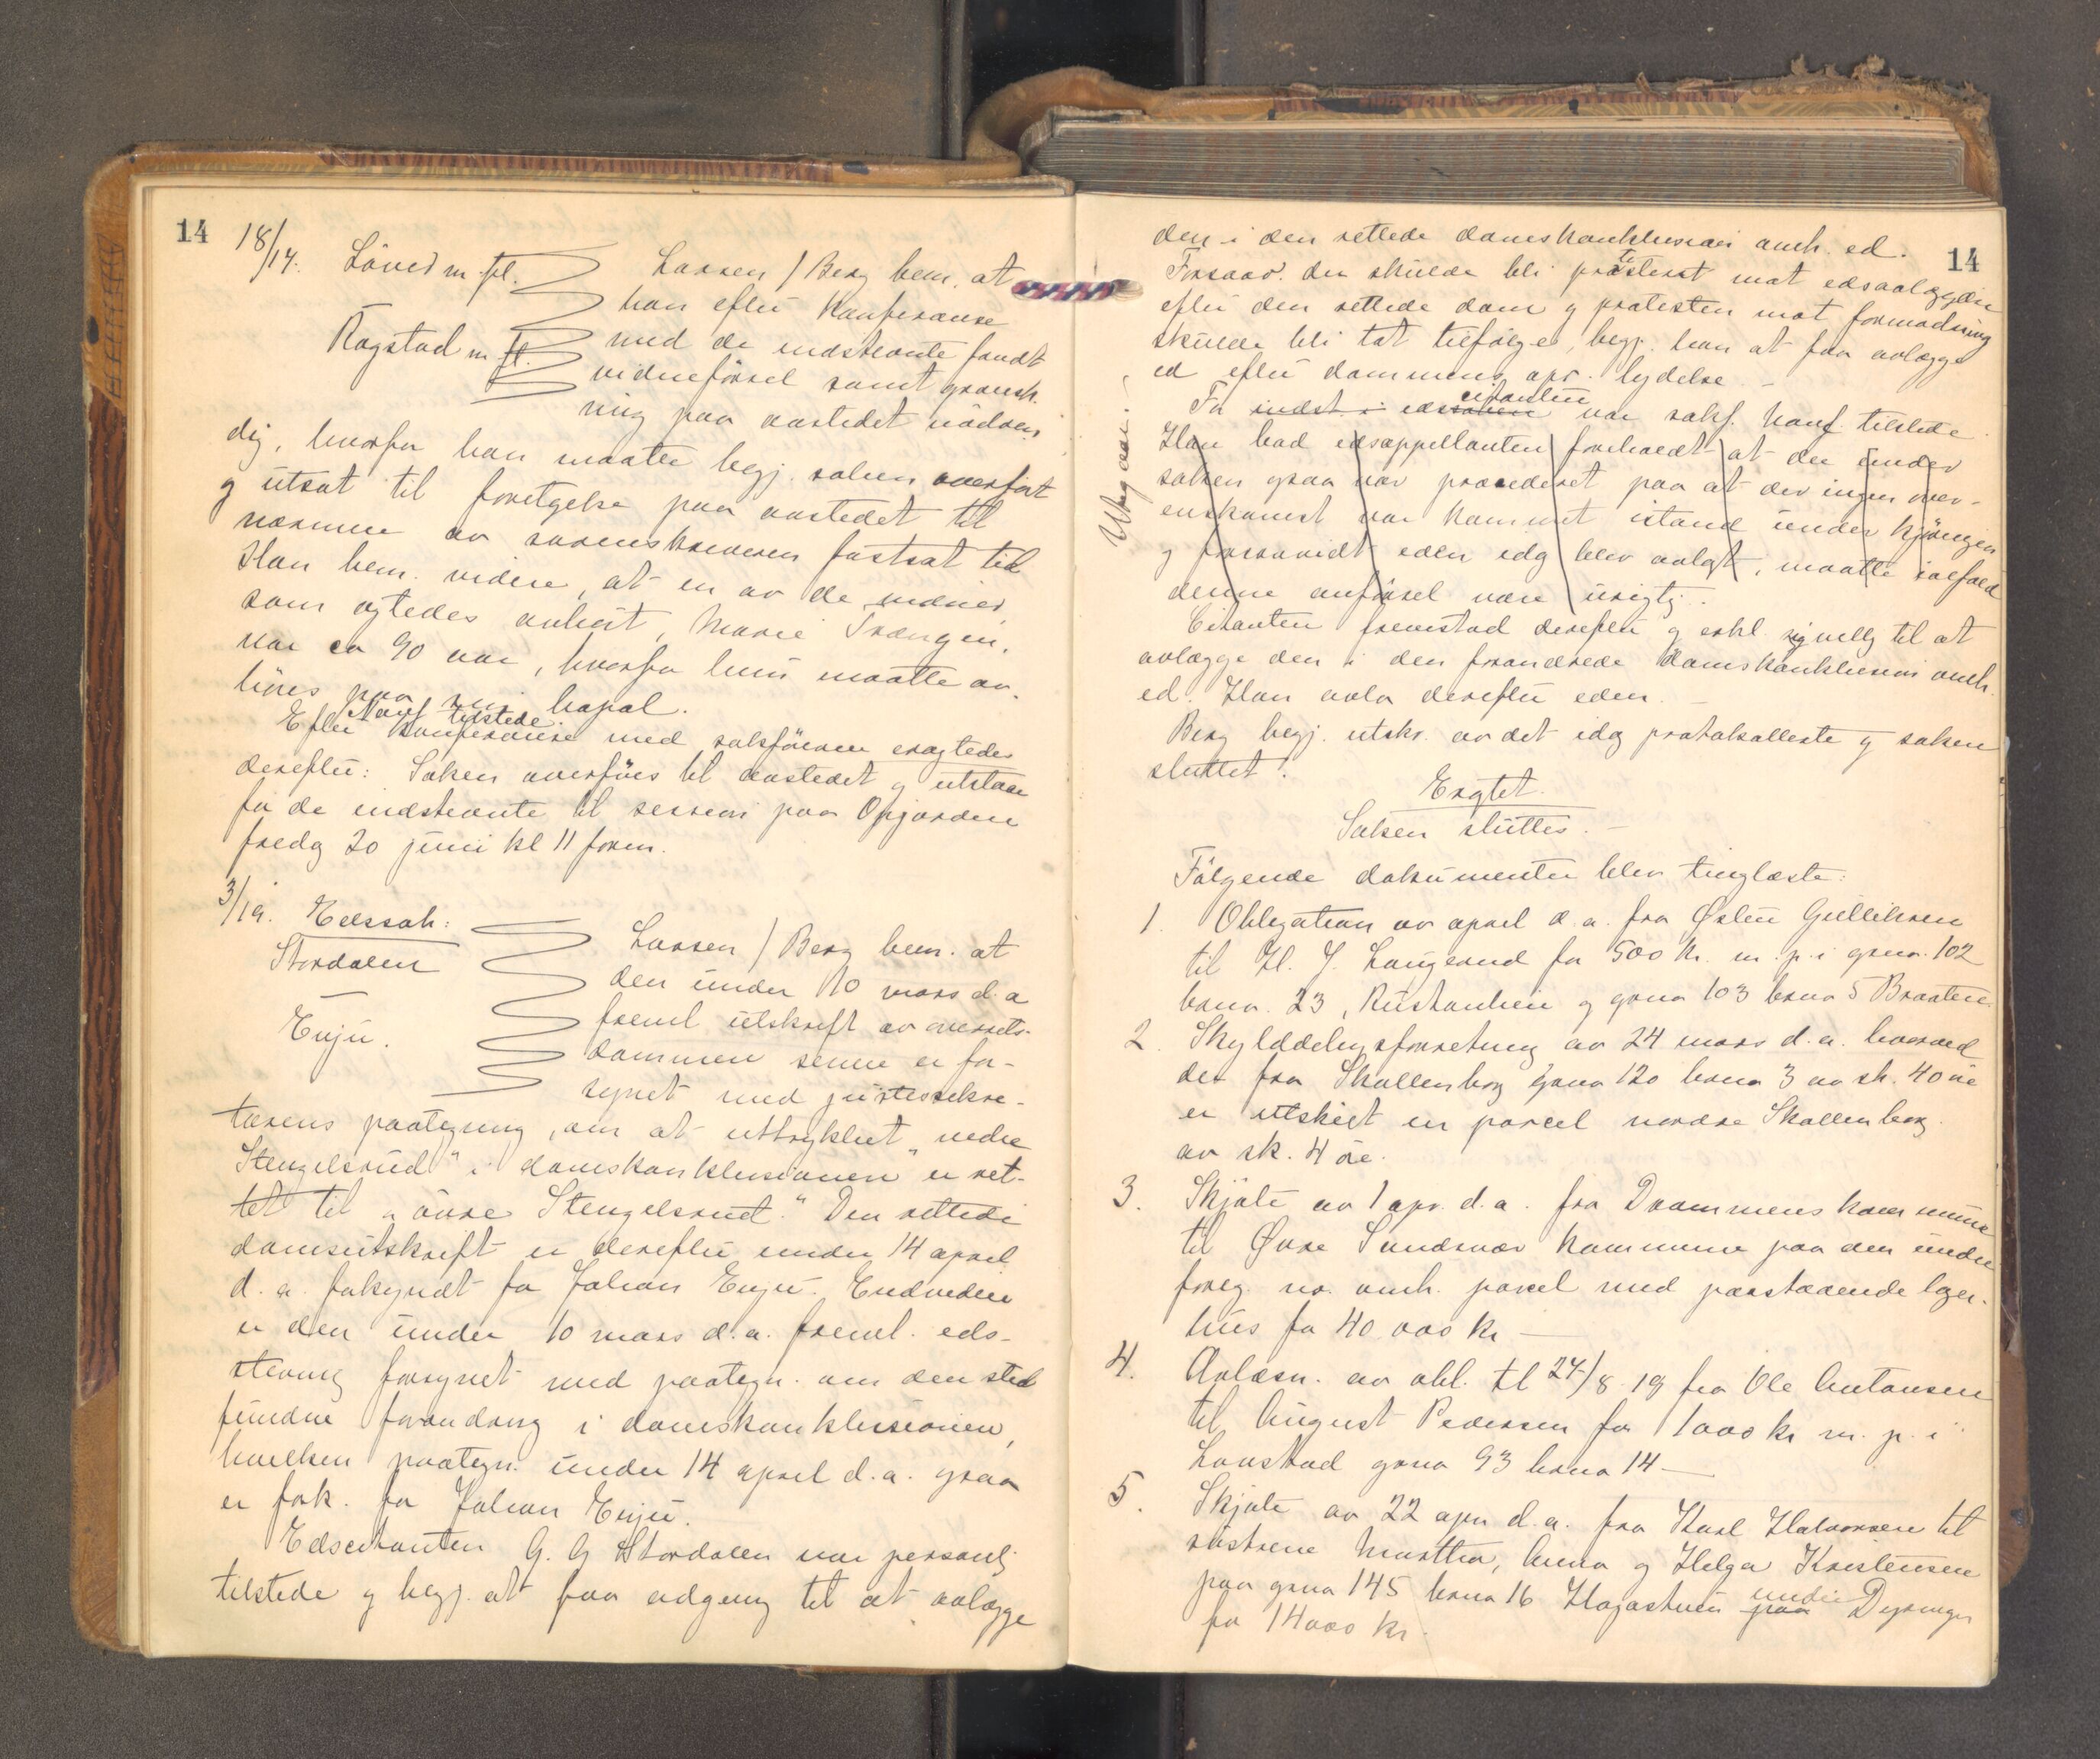 14
18/14. Löved m. fl. Larsen / Berg bem. at
han efter konferanse
Ragstad m. fl. med de indstevnte fandt
vidneförsel samt gransk-
ning paa aastedet nödven
dig, hvorfor han maatte begj. saken overfört
og utsat til foretagelse paa aastedet til
nærmere av sorenskriveren fastsat tid
Han bem. videre, at en av de vidner
som agtedes anhört, Marie
var ca 90 aar, hvorfor hun maatte av-
höres paa sin bopæl.
Konf tilstede.
Efter konferanse med sakförerne eragtedes
derefter: Saken overföres til aastedet og utstaar
for de indstevnte til session paa Opgarden
fredag 20 juni kl 11 form.
3/19. Edssak:
Stordalen Larsen / Berg bem. at
den under 10 mars d.a
Enju. freml utskrift av overrets-
dommen senere er for-
synet med justissekre-
tærens paategning, om at uttrykket "nedre
Stengelsrud" i domskonklusionen er ret-
tet til "övre Stengelsrud." Den rettede
domsutskrift er derefter under 14 april
d. a. forkyndt for Johan Enju. Endvidere
er den under 10 mars d.a. freml. eds-
stevning forsynet med paategn. om den sted
fundne forandring i domskonklusionen,
hvilken paategn. under 14 april d.a. ogsaa
er fork. for Johan Enju.
Edscitanten G. G Stordalen var personlig
tilstede og begj. at faa adgang til at avlægge
14
den i den rettede domskonklusion omh. ed.
Forsaav. der skulde bli protestert mot edsavlæggelse
efter den rettede dom og protesten mot formodning
skulde bli tat tilfölge, begj. han at faa avlægge
ed efter dommens opr. lydelse. -
citanten
For indst. i edssaken var sakf. Konf. tilstede
Utgaar.
Han bad edsappellanten foreholdt at der under
saken ogsaa var procedert paa at der ingen over-
enskomst var kommet istand under kjöringen
og forsavidt eden idag blev avlagt, maatte ialfald
denne anförsel være urigtig.
Citanten fremstod derefter og erkl. sig villig til at
avlægge den i den forandrede domskonklusion omh.
ed. Han avla derefter eden. -
Berg begj. utskr. av det idag protokollerte og saken
sluttet.
Eragtet.
Saken sluttes. -
Fölgende dokumenter blev tinglæste:
1. Obligation av april d.a. fra Østen Gulliksen
til H. J. Langerud for 500 kr. m. p. i gnr. 102
bnr. 23, og gnr 103 bnr 5 Braaten
2. Skylddelingsforretning av 24 mars d.a. hvorved
der fra Skollenborg gnr 120 bnr 3 av sk. 40 öre
er utskilt en parcel nordre Skollenborg
av sk. 4 öre.
3. Skjöte av 1 apr. d.a. fra Drammens kommune
til Øvre Sandsvær kommune paa den under
foreg. no. omh. parcel med paastaaende lager-
hus for 40 000 kr -
4. Avlæsn. av obl. tl 24/8 19 fra Ole Antonsen
til August Pedersen for 1000 kr m. p. i
Lonstad gnr 93 bnr 14 -
5. Skjöte av 22 apr d.a. fra Karl Halvorsen til
söstrene Martha, Anna og Helga Kristensen
under
paa gnr 145 bnr 16 Hagastuen paa Dyrange
for 14000 kr.